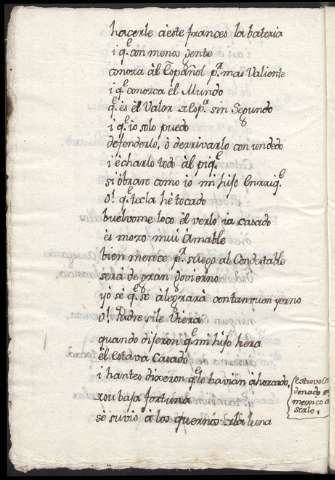 hacerle à este frances la bateria
i q.e con menos gente
conosca àl Español p.r mas Valiente
i q.e conosca èl Mundo
q.e es èl Valor Esp.l sin Segundo
i q.e io solo puedo
defenderlo, ò derrivarlo con un dedo
i echarlo todo àl piq.e
si òbraré como io mi hijo Enrriq.e
O! q.e tecla hè tocado
buelvome loco èl verlo ia casado
ès mozo mui Amable
bien merece p.r suegro al Condestable
serà de gran govierno
yo sè q.e se àlegrarà con tan buen yerno
O! Padre si le Viera
quando dijeron q.e mi hijo hera
èl estava Casado
i hantes dixeron q.e lo havian àhorcado,
por baja fortuna
se subio à los quernos de la luna